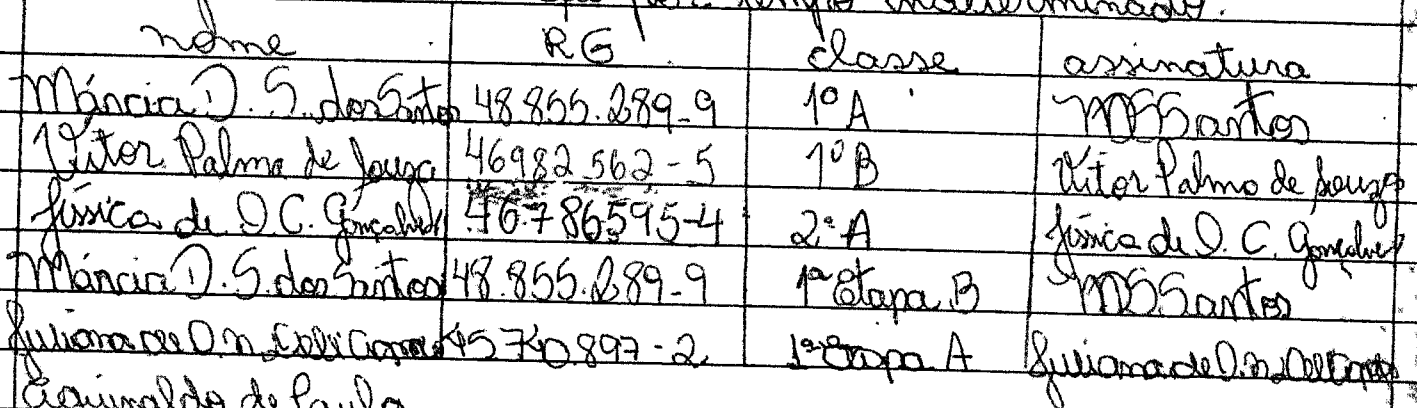 por tempo indeterminado.
nome RG classe assinatura
Márcia D. S. dos Santos 48.855.289-9 1º A MSSantos
Vitor Palma de Souza 46982562-5 1º B Vitor Palma de Souza
Jéssica de O. C. Gonçalves 46.786595-4 2ª A Jéssica de O. C. Gonçalves
Márcia D. S. dos Santos 48.855.289-9 1ª Etapa B MSSantos
Juliana de O. N. 45740.897-2 1ª Etapa A Juliana de O. N.
Aguinaldo de Paula